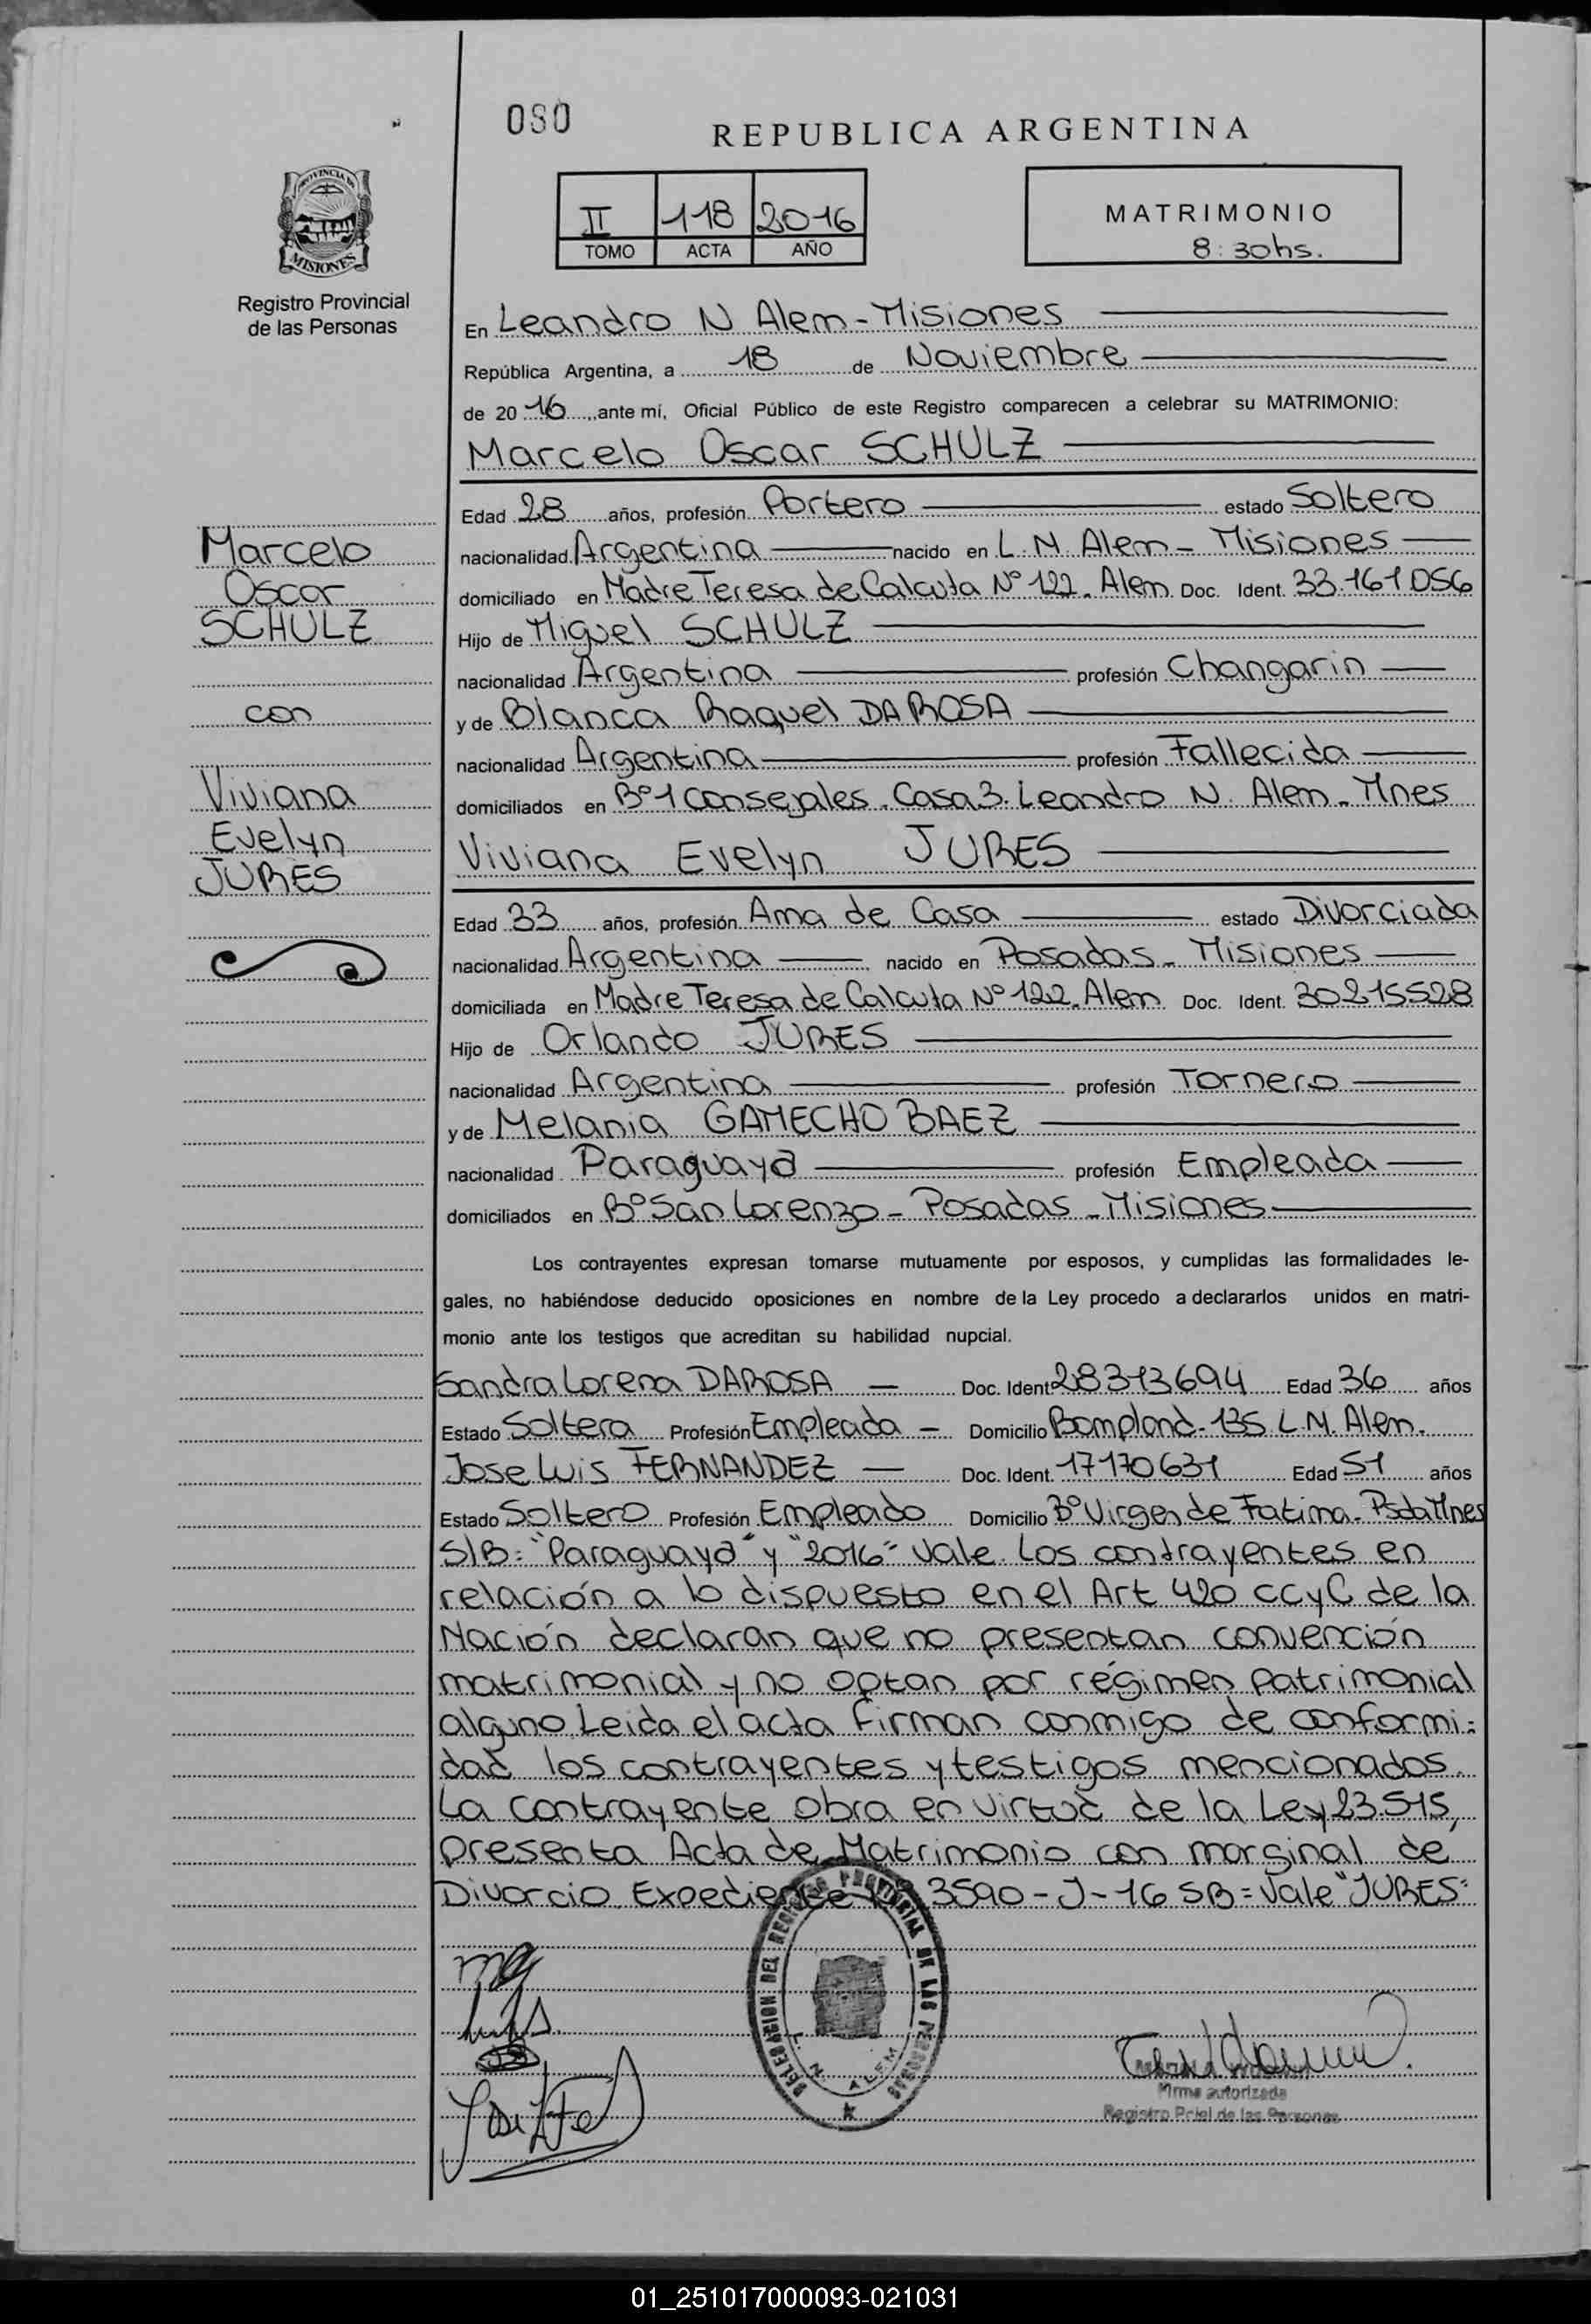 080
REPUBLICA ARGENTINA
PROVINCIA DE
MISIONES
Registro Provincial
de las Personas
II 118 2016
TOMO ACTA AÑO
MATRIMONIO
8:30hs.
En Leandro N Alem - Misiones
República Argentina, a 18 de Noviembre
de 20 16 ,ante mí, Oficial Público de este Registro comparecen a celebrar su MATRIMONIO:
Marcelo Oscar SCHULZ
Edad 28 años, profesión Portero estado Soltero
nacionalidad Argentina nacido en L.N. Alem - Misiones
domiciliado en Madre Teresa de Calcuta Nº 122. Alem Doc. Ident. 33.161.056
Hijo de Miguel SCHULZ
nacionalidad Argentina profesión Changarin
y de Blanca Raquel DA ROSA
nacionalidad Argentina profesión Fallecida
domiciliados en Bº 1 Consejales. Casa 3. Leandro N. Alem - Mnes
Viviana Evelyn JURES
Edad 33 años, profesión Ama de Casa estado Divorciada
nacionalidad Argentina nacido en Posadas - Misiones
domiciliada en Madre Teresa de Calcuta Nº 122. Alem Doc. Ident. 30215528
Hijo de Orlando JURES
nacionalidad Argentina profesión Tornero
y de Melania GAMECHO BAEZ
nacionalidad Paraguaya profesión Empleada
domiciliados en Bº San Lorenzo - Posadas - Misiones
Marcelo
Oscar
SCHULZ
con
Viviana
Evelyn
JURES
Los contrayentes expresan tomarse mutuamente por esposos, y cumplidas las formalidades le-
gales, no habiéndose deducido oposiciones en nombre de la Ley procedo a declararlos unidos en matri-
monio ante los testigos que acreditan su habilidad nupcial.
Sandra Lorena DA ROSA - Doc. Ident 28313694 Edad 36 años
Estado Soltera Profesión Empleada - Domicilio Bompland. 135 L.N. Alem.
Jose Luis FERNANDEZ - Doc. Ident. 17170631 Edad 51 años
Estado Soltero Profesión Empleado Domicilio Bº Virgen de Fatima - Psda Mnes
S/B: "Paraguaya" y "2016" Vale. Los contrayentes en
relación a lo dispuesto en el Art 420 CCyC de la
Nación declaran que no presentan convención
matrimonial y no optan por régimen patrimonial
alguno Leida el acta firman conmigo de conformi-
dad los contrayentes y testigos mencionados.
La contrayente obra en virtud de la Ley 23.515,
presenta Acta de Matrimonio con marginal de
Divorcio. Expediente Nº 3590 - J - 16 SB = Vale "JURES"
DELEGACION DEL REGISTRO PROVINCIAL DE LAS PERSONAS
L. N. ALEM
Firma autorizada
Registro Pcial de las Personas
01_251017000093-021031